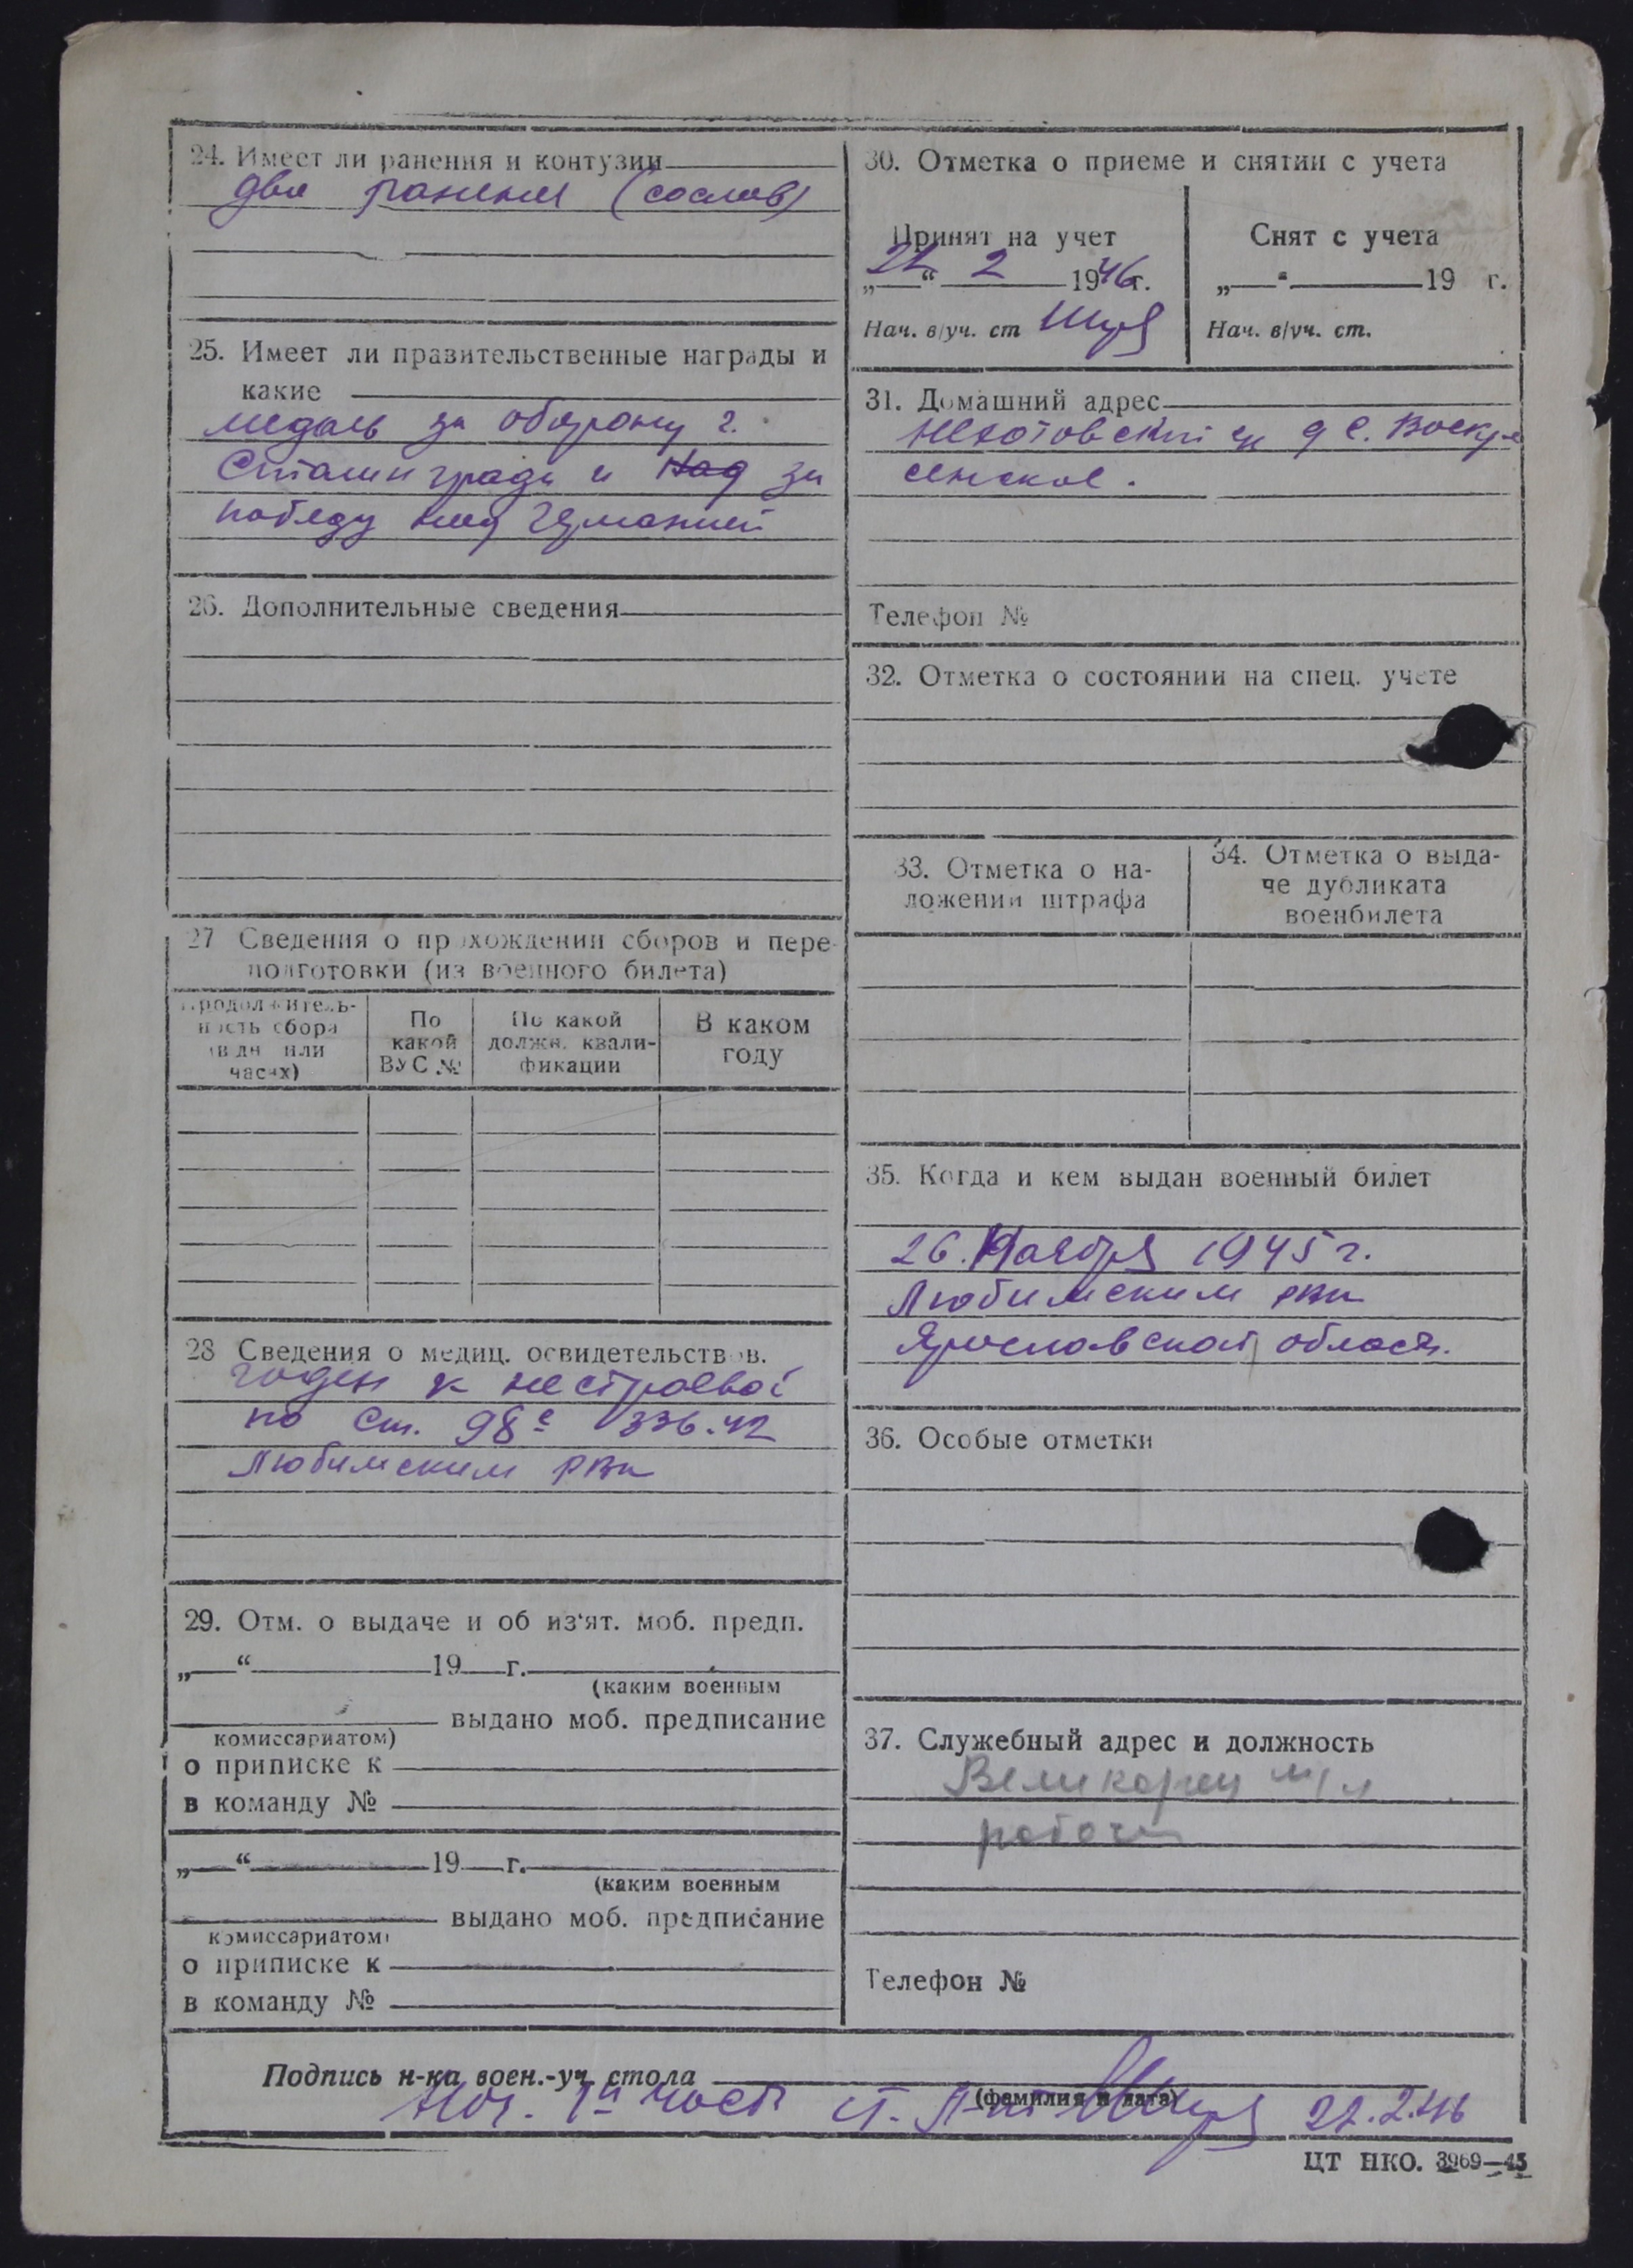 24. Имеет ли ранения и контузии
два ранения (со слов)
25. Имеет ли правительственные награды и
какие
медаль за оборону г.
Сталинграда и над за
победу над Германией
26. Дополнительные сведения
27 Сведения о прохождении сборов и пере-
подготовки (из военного билета)
Продолжитель-
ность сбора
(в дн или
часах)
По
какой
ВУС №
По какой
должн. квали-
фикации
В каком
году
28 Сведения о медиц. освидетельствов.
годен к нестроевой
по ст. 98 336.42
Любимским РВК
29. Отм. о выдаче и об из'ят. моб. предп.
„ “ 19 г.
(каким военным
выдано моб. предписание
комиссариатом)
о приписке к
в команду №
„ “ 19 г.
(каким военным
выдано моб. предписание
комиссариатом)
о приписке к
в команду №
30. Отметка о приеме и снятии с учета
Принят на учет
„22“ 2 1946г.
Нач. в/уч. ст
Снят с учета
„ “ 19 г.
Нач. в/уч. ст.
31. Домашний адрес
с. Воскре
сенское.
Телефон №
32. Отметка о состоянии на спец. учете
33. Отметка о на-
ложении штрафа
34. Отметка о выда-
че дубликата
военбилета
35. Когда и кем выдан военный билет
26. Ноября 1945 г.
Любимским РВК
Ярославской област.
36. Особые отметки
37. Служебный адрес и должность
рабочий
Телефон №
Подпись н-ка воен.-уч. стола
(фамилия и дата)
Нач. 1й част ст. Л-нт 22.2.46
ЦТ НКО. 3969—45